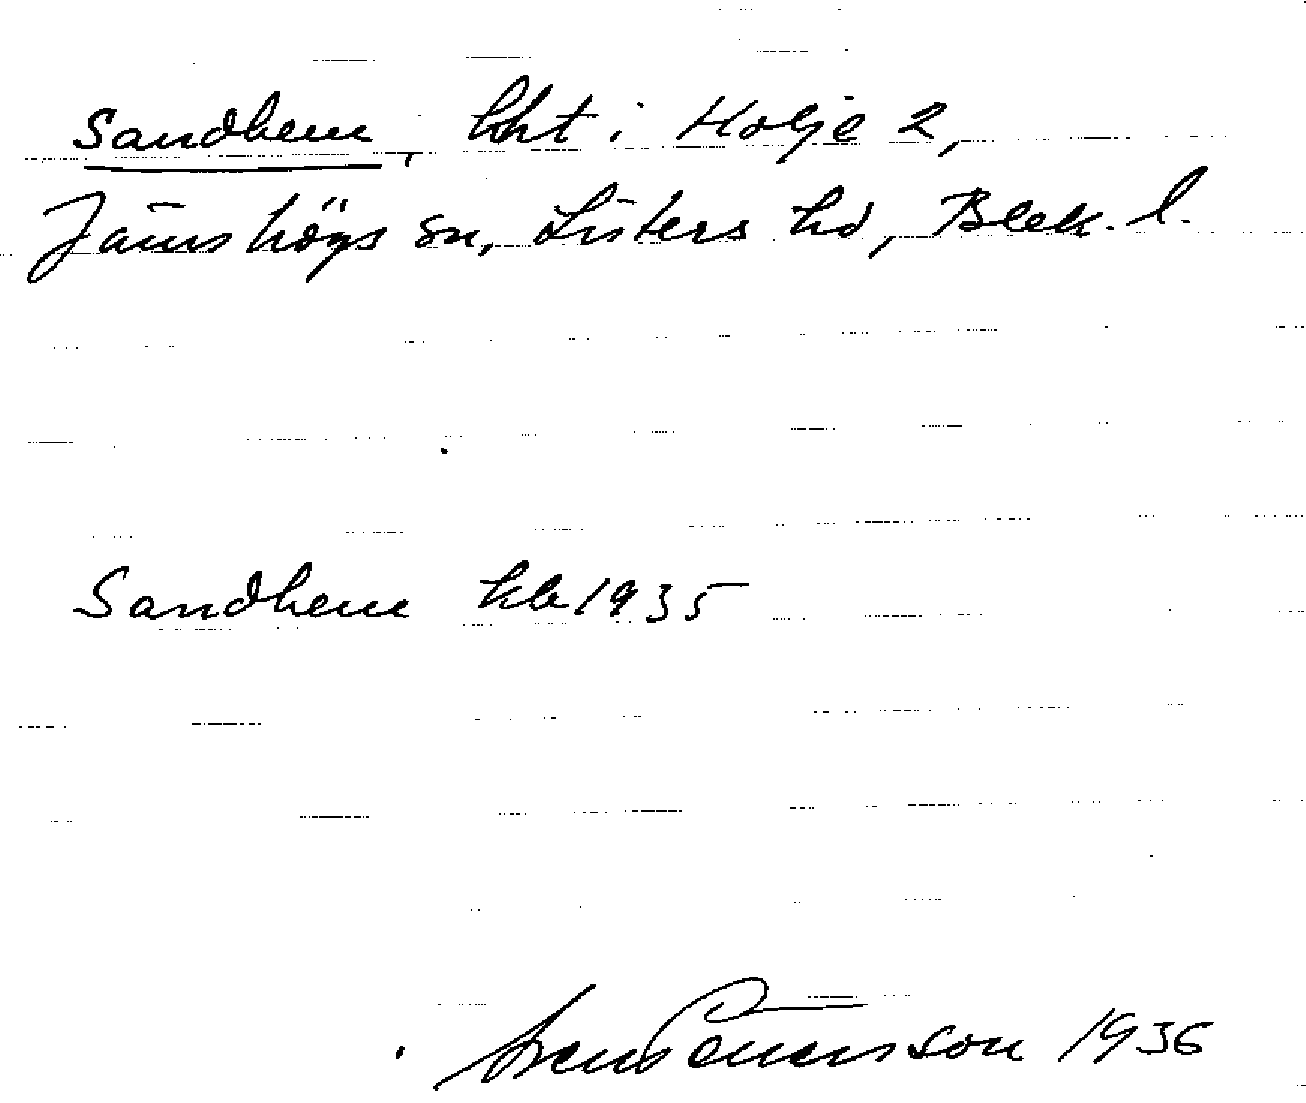 Sandhem, lht i Holje 2,
Jämshögs sn, Listers hd, Blek. l.
Sandhem kb 1935
Sven 1936